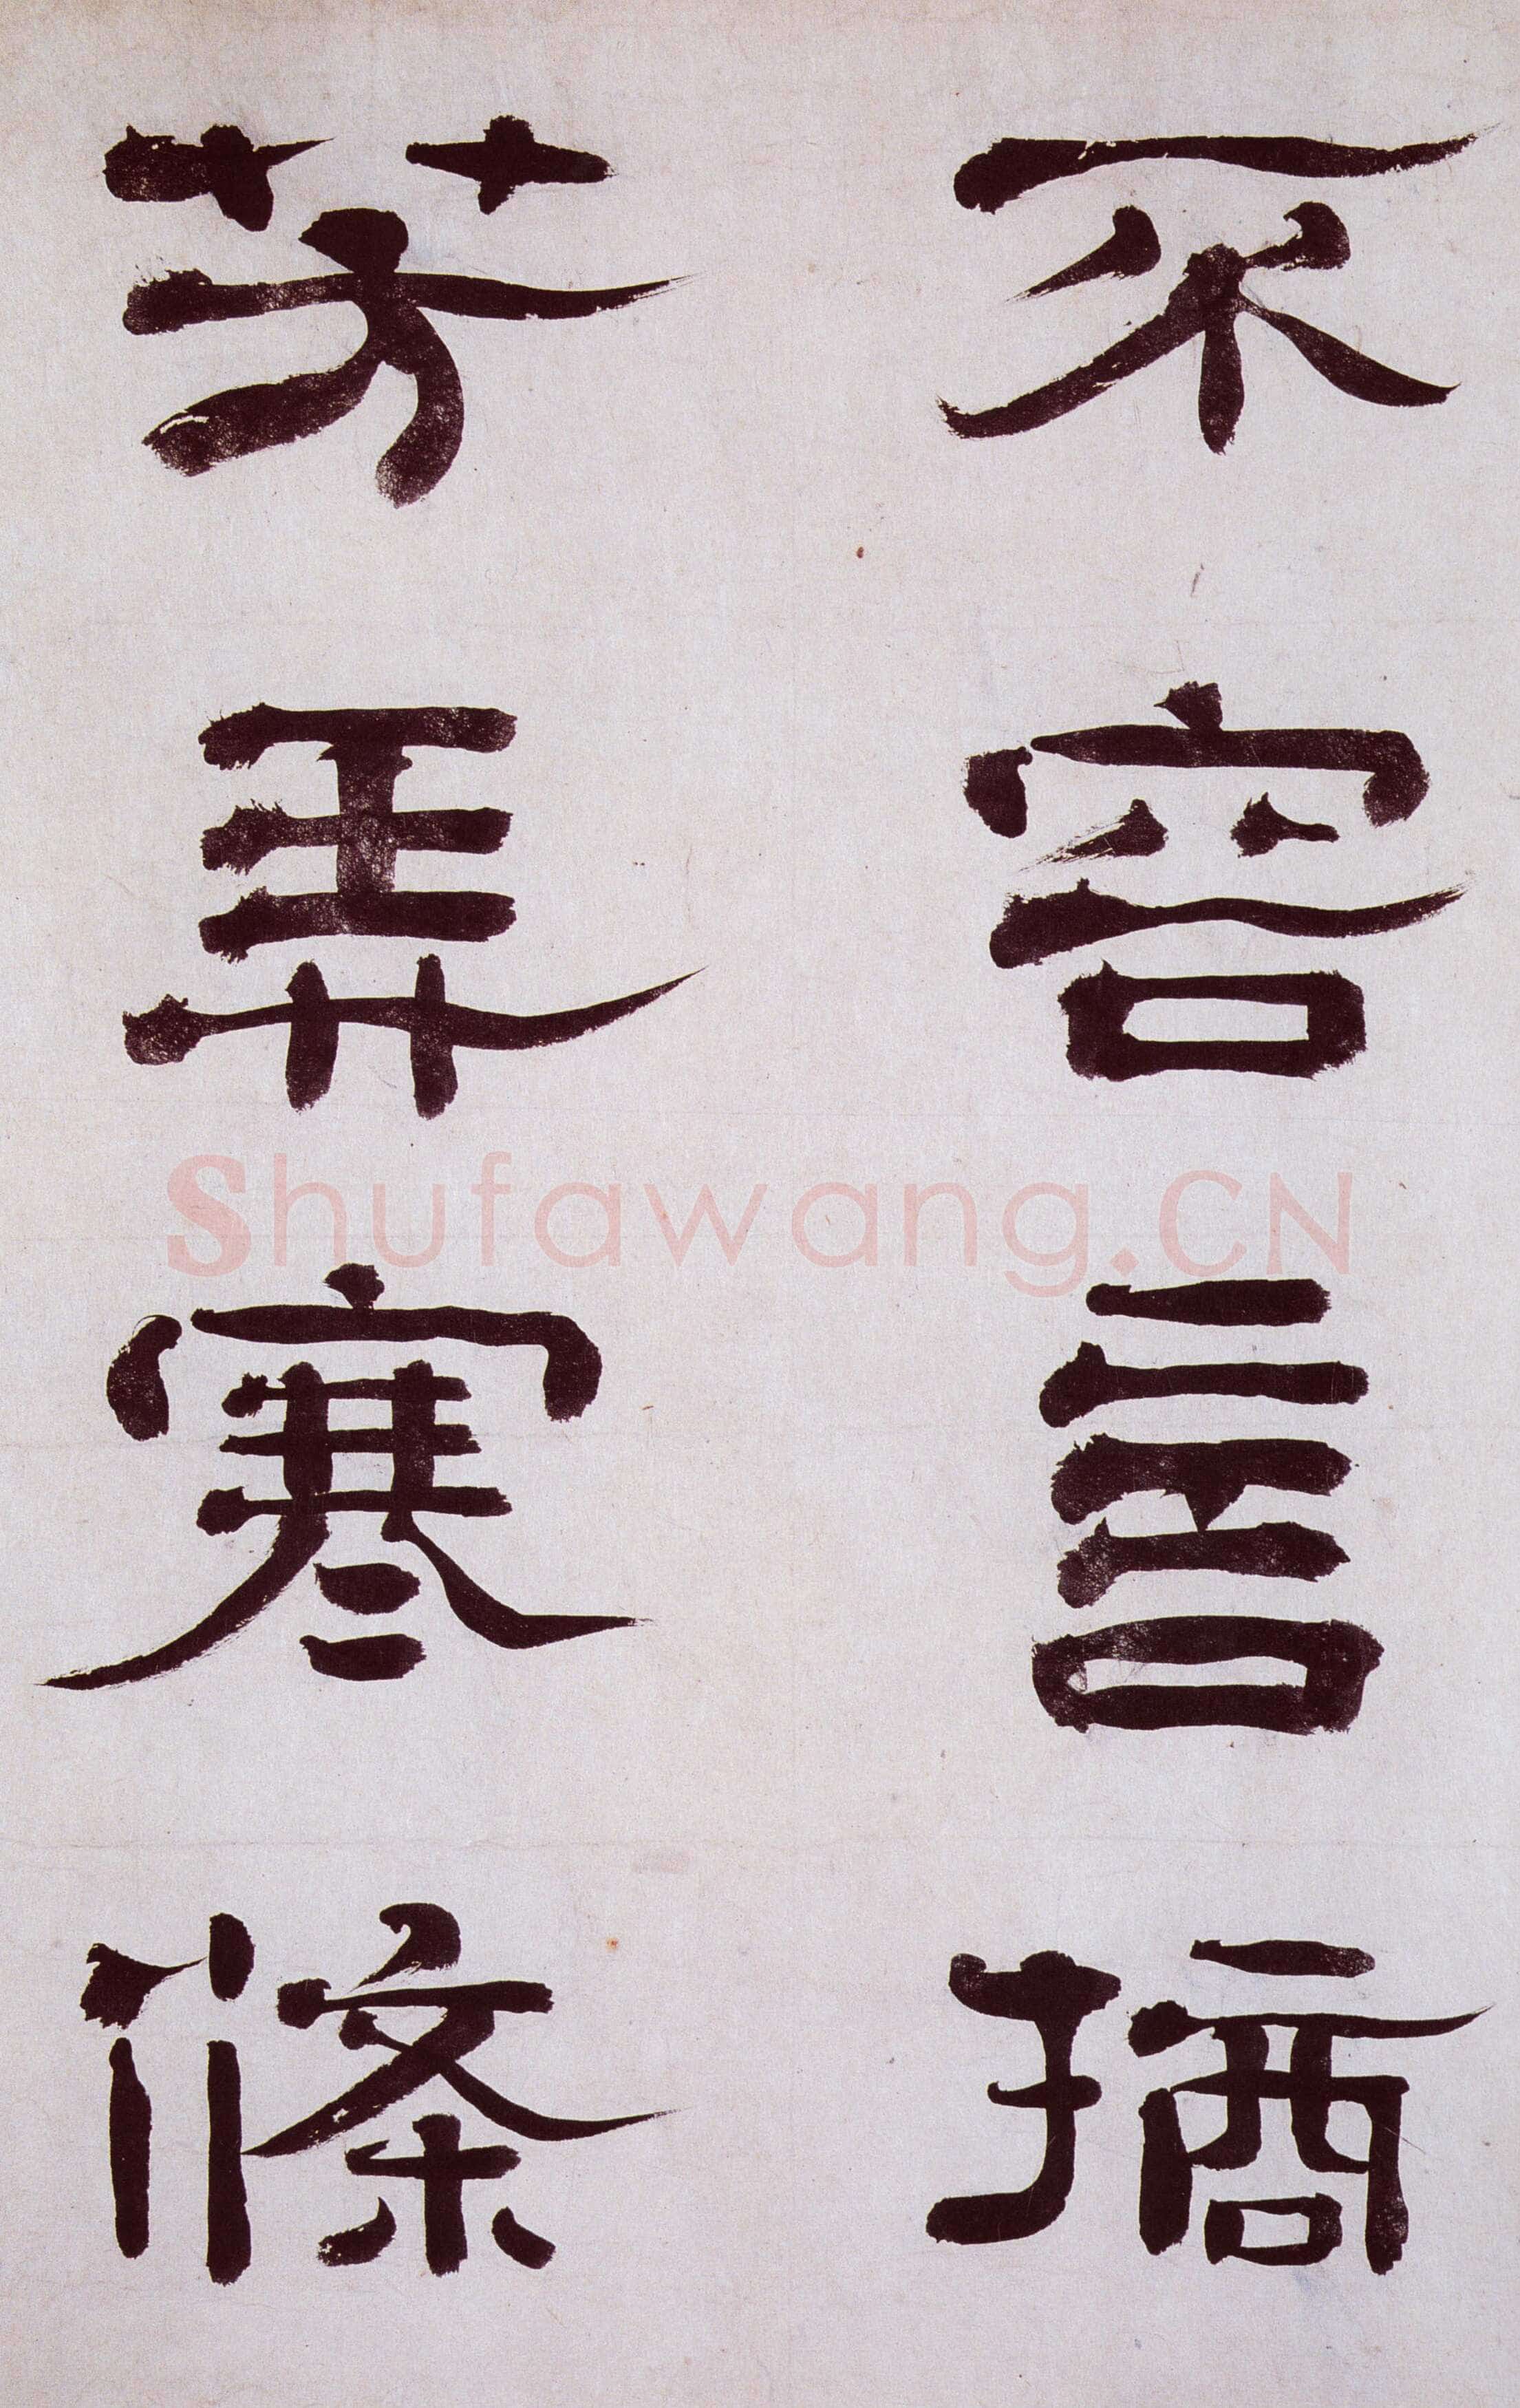 不容言摘
芳弄寒條
Shufawang.CN